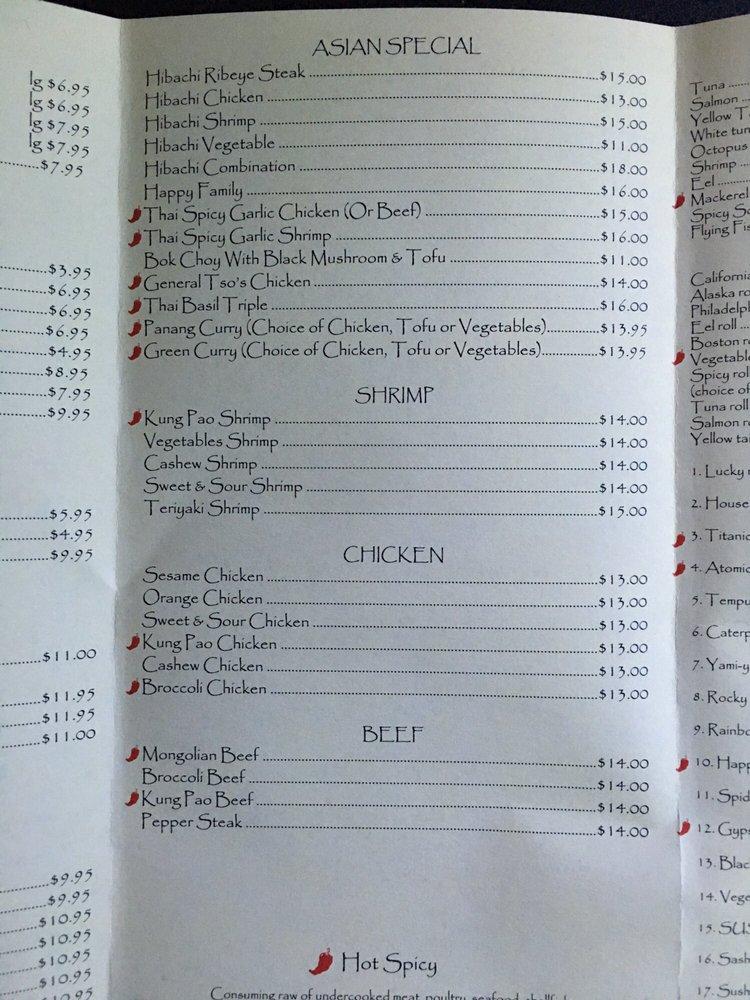 lg $6.95
lg $6.95
lg $7.95
lg $7.95
$7.95
$3.95
$6.95
$6.95
$6.95
$4.95
$8.95
$7.95
$9.95
$5.95
$4.95
$9.95
$11.00
$11.95
$11.95
$11.00
$9.95
$9.95
$10.95
$10.95
$10.95
$10.95
ASIAN SPECIAL
Hibachi Ribeye Steak $15.00
Hibachi Chicken $13.00
Hibachi Shrimp $15.00
Hibachi Vegetable $11.00
Hibachi Combination $18.00
Happy Family $16.00
Thai Spicy Garlic Chicken (Or Beef) $15.00
Thai Spicy Garlic Shrimp $16.00
Bok Choy With Black Mushroom & Tofu $11.00
General Tso's Chicken $14.00
Thai Basil Triple $16.00
Panang Curry (Choice of Chicken, Tofu or Vegetables) $13.95
Green Curry (Choice of Chicken, Tofu or Vegetables) $13.95
SHRIMP
Kung Pao Shrimp $14.00
Vegetables Shrimp $14.00
Cashew Shrimp $14.00
Sweet & Sour Shrimp $14.00
Teriyaki Shrimp $15.00
CHICKEN
Sesame Chicken $13.00
Orange Chicken $13.00
Sweet & Sour Chicken $13.00
Kung Pao Chicken $13.00
Cashew Chicken $13.00
Broccoli Chicken $13.00
BEEF
Mongolian Beef $14.00
Broccoli Beef $14.00
Kung Pao Beef $14.00
Pepper Steak $14.00
Hot Spicy
Consuming raw of undercooked meat, poultry, seafood,
Tuna
Salmon
Yellow T
White tun
Octopus
Shrimp
Eel
Mackerel
Spicy Sc
Flying Fis
California
Alaska ro
Philadelph
Eel roll
Boston ro
Vegetable
Spicy roll
(choice of
Tuna roll
Salmon r
Yellow tai
1. Lucky
2. House
3. Titanic
4. Atomic
5. Tempu
6. Caterp
7. Yami-y
8. Rocky
9. Rainbo
10. Happ
11. Spid
12. Gyps
13. Blac
14. Vege
15. SUS
16. Sash
17. Sush